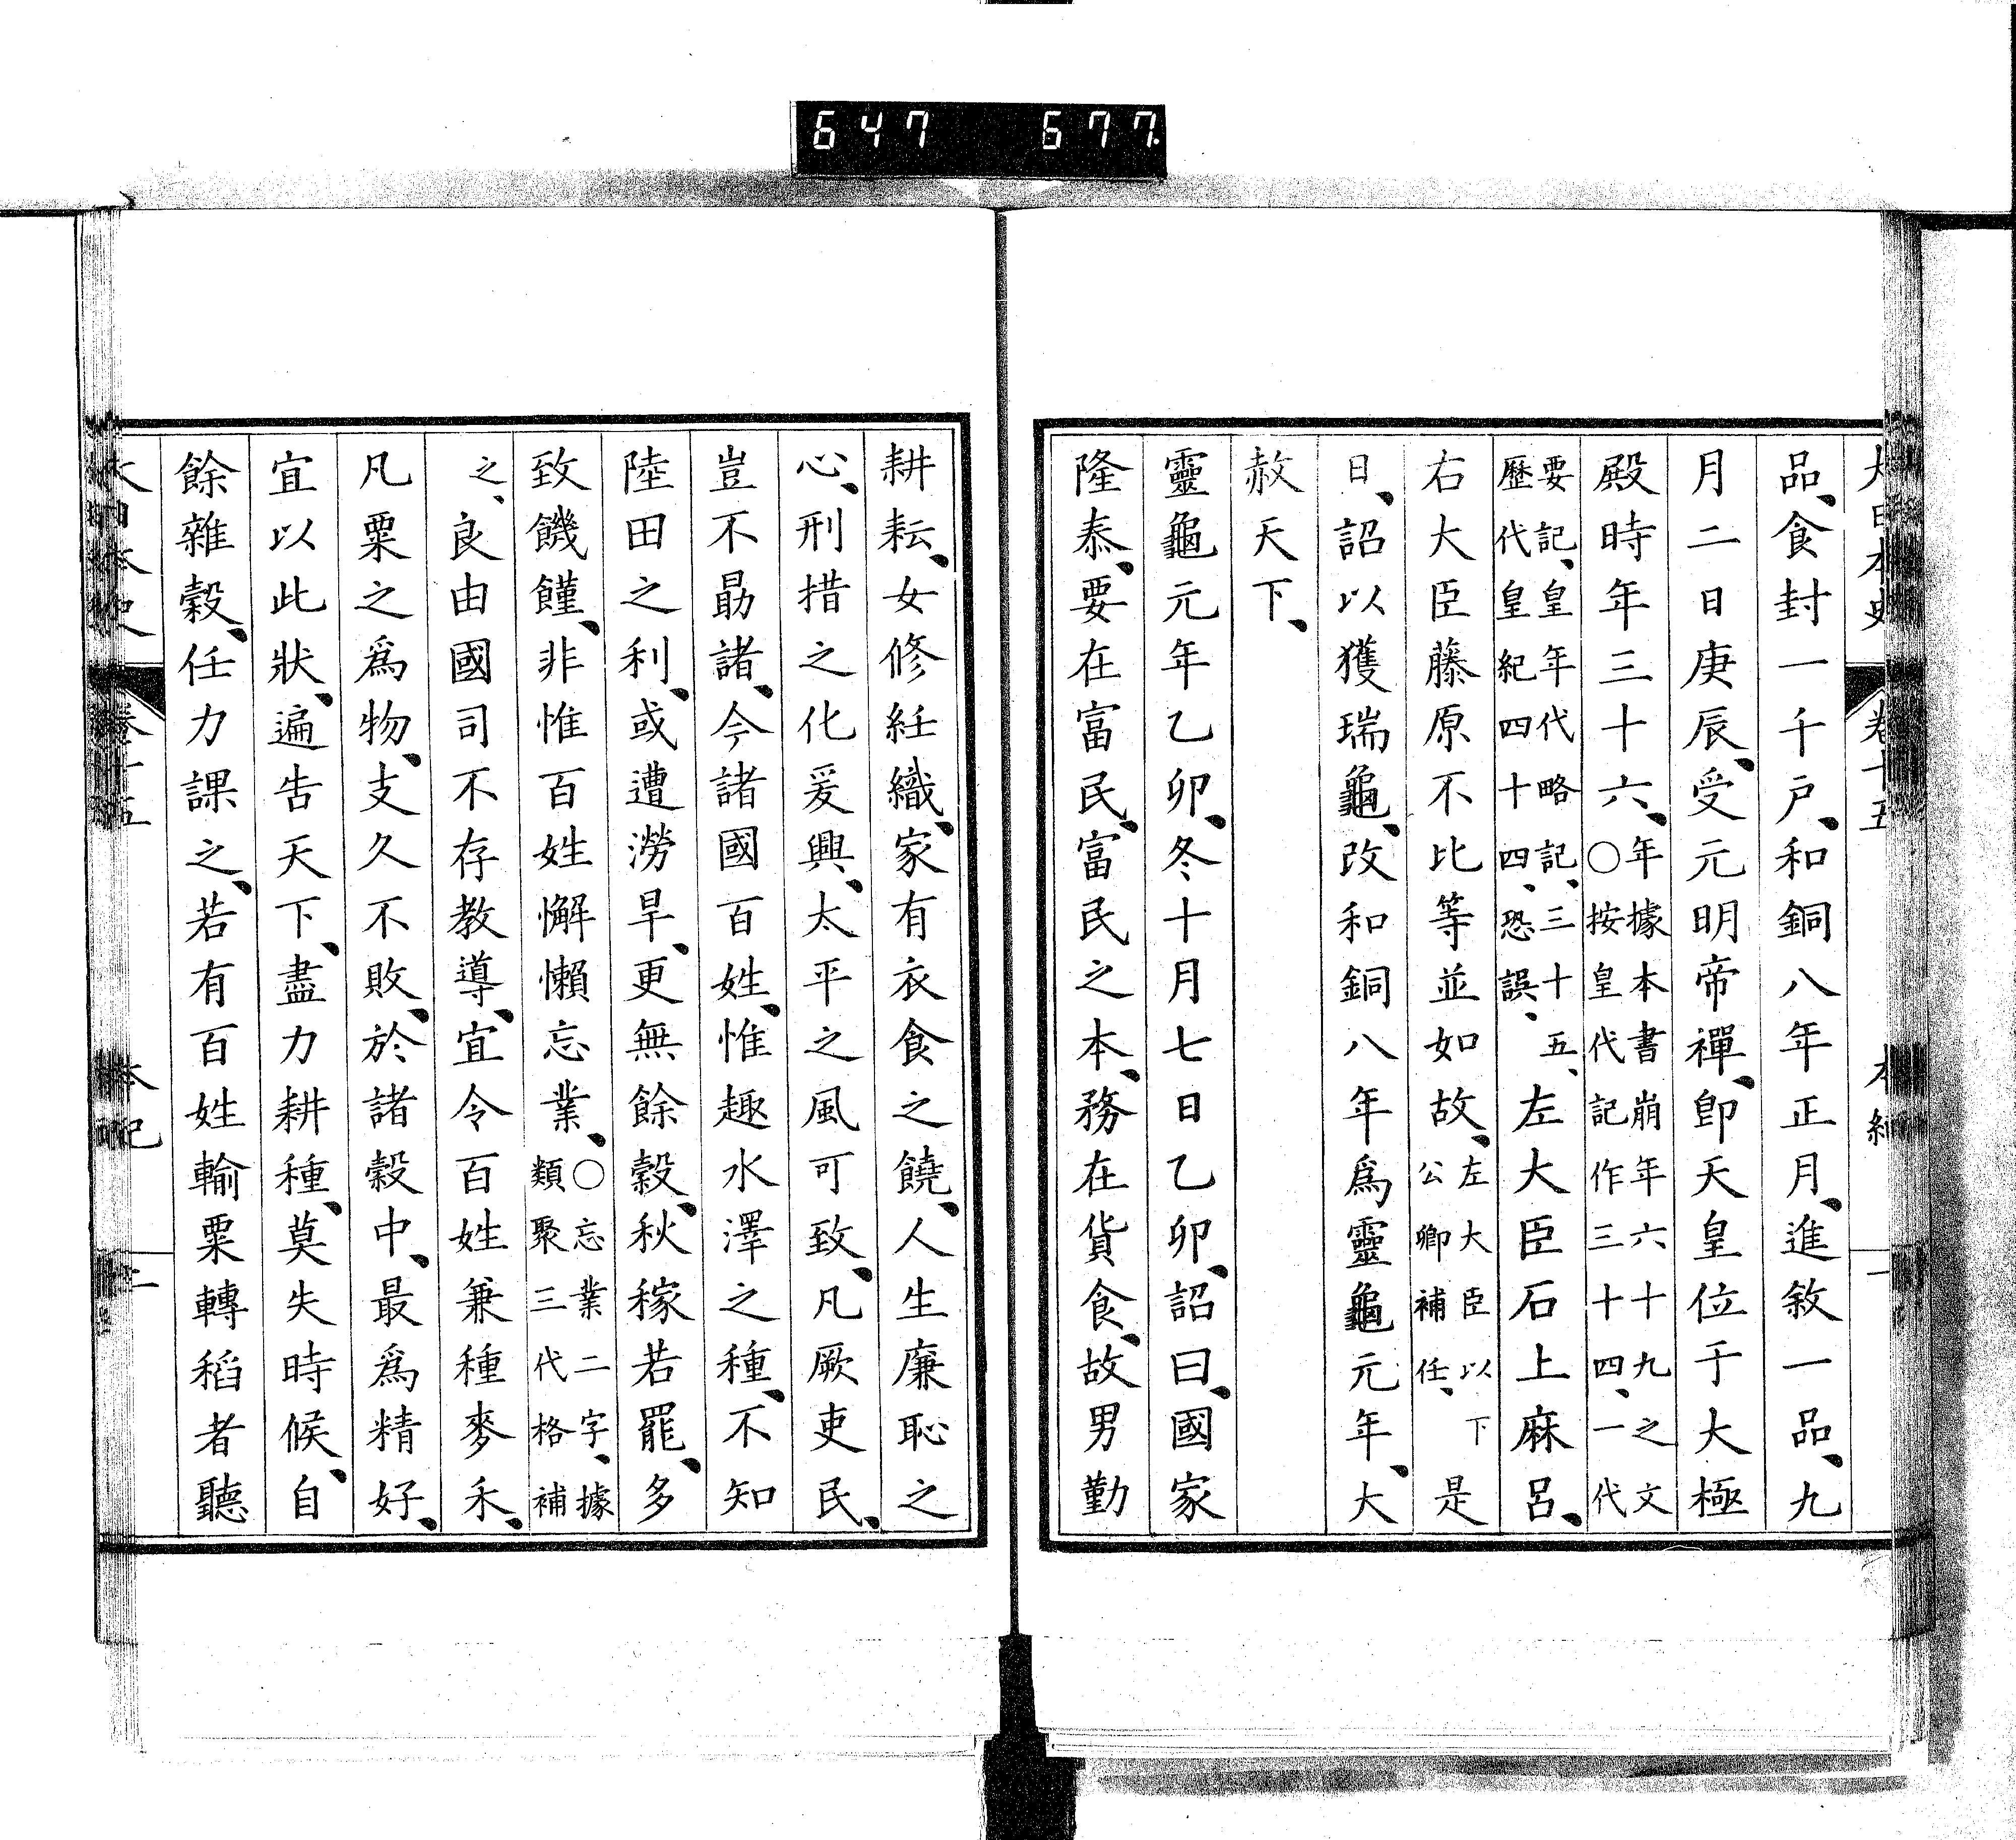 647 677.
大日本史 卷十五 本紀 一
品、食封一千戸、和銅八年正月、進敘一品、九
月二日庚辰、受元明帝禪、卽天皇位于大極
殿時年三十六、年據本書崩年六十九之文○按皇代記作三十四、一代
要記、皇年代略記、三十五、歷代皇紀四十四、恐誤、左大臣石上麻呂、
右大臣藤原不比等並如故、左大臣以下公卿補任、是
日、詔以獲瑞龜、改和銅八年爲靈龜元年、大
赦天下、
靈龜元年乙卯、冬十月七日乙卯、詔曰、國家
隆泰、要在富民、富民之本、務在貨食、故男勤
耕耘、女修紝織、家有衣食之饒、人生廉恥之
心、刑措之化爰興、太平之風可致、凡厥吏民、
豈不勗諸、今諸國百姓、惟趣水澤之種、不知
陸田之利、或遭澇旱、更無餘穀、秋稼若罷、多
致饑饉、非惟百姓懈懶忘業、○忘業二字、據類聚三代格補
之、良由國司不存教導、宜令百姓兼種麥禾、
凡粟之爲物、支久不敗、於諸穀中、最爲精好、
宜以此狀、遍吿天下、盡力耕種、莫失時候、自
餘雜穀、任力課之、若有百姓輸粟轉稻者聽
大日本史 卷十五 本紀 二